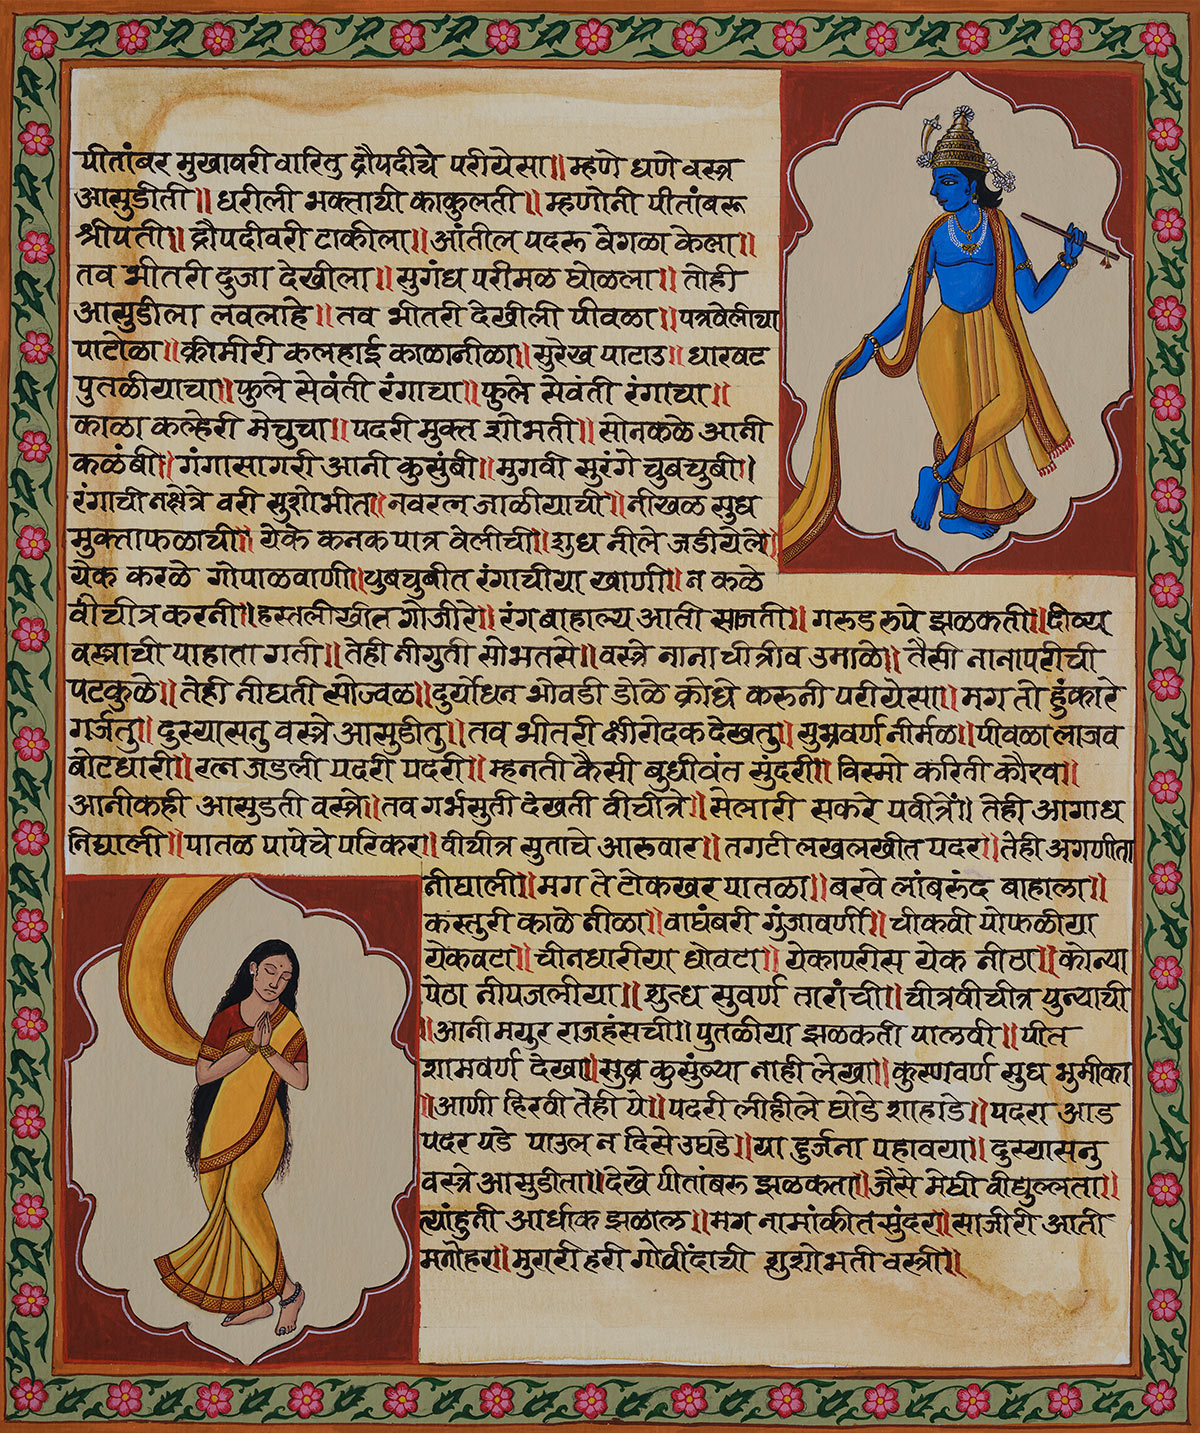 पीतांबर मुखावरी वारितु द्रौपदीचे परीयेसा॥ म्हणे धणे वस्त्र
आसुडीती॥ धरीली भक्ताची काकुलती॥ म्हणोनी पीतांबरू
श्रीपती॥ द्रौपदीवरी टाकीला॥ आंतील पदरू वेगळा केला॥
तव भीतरी दुजा देखीला॥ सुगंध परीमळ घोळला॥ तोही
आसुडीला लवलाहे॥ तव भीतरी देखीली पीवळा॥ पत्रवेलीचा
पाटोळा॥ क्रीमीरी कलहाई काळानीळा॥ सुरेख पाटाउ॥ धारवट
पुतळीयाचा॥ फुले सेवंती रंगाचा॥ फुले सेवंती रंगाचा॥
काळा कल्हेरी मेचुचा॥ पदरी मुक्त शोभती॥ सोनकळे आनी
कळंबी॥ गंगासागरी आनी कुसुंबी॥ मुगवी सुरंगे चुबचुबी॥
रंगाची नक्षेत्रे वरी सुशोभीता॥ नवरत्न जाळीयाची॥ नीखळ सुध
मुक्ताफळाची॥ येके कनकपात्र वेलीची॥ शुध नीले जडीयेले॥
येक करळे गोपाळवाणी॥ चुबचुबीत रंगाचीया खाणी॥ न कळे
वीचीत्र करनी॥ हस्तलीखीत गोजीरे॥ रंग बाहाल्य आती साजती॥ गरुड रुपे झळकती॥ दीव्य
वस्त्राची पाहाता गती॥ तेही नीगुती सोभतसे॥ वस्त्रे नाना चीत्रीव उमाळे॥ तैसी नानापरीची
पटकुळे॥ तेही नीघती सोज्वळ॥ दुर्योधन भोवडी डोळे क्रोधे करुनी परीयेसा॥ मग तो हुंकारे
गर्जतु॥ दुस्यासनु वस्त्रे आसुडीतु॥ तव भीतरी क्षीरोदक देखतु॥ सुभ्रवर्ण नीर्मळ॥ पीवळा लाजव
बोटधारी॥ रत्न जडली पदरी पदरी॥ म्हनती कैसी बुधीवंत सुंदरी॥ विस्मो करिती कौरव॥
आनीकही आसुडती वस्त्रो॥ तव गर्भसुती देखती वीचीत्रे॥ सेलारी सकरे पवीत्रें॥ तेही आगाध
निघाली॥ पातळ पापेचे परिकर॥ वीचीत्र सुताचे आरुवार॥ तगटी लखलखीत पदर॥ तेही अगणीता
नीघाली॥ मग ते टोकखर पातळा॥ बरवे लांबरुंद बाहाला॥
कस्तुरी काळे नीळा॥ वाघंबरी गुंजावर्णी॥ चीकवी पोफळीया
येकवटा॥ चीनधारीया धोवटा॥ येकापरीस येक नीठा॥ कोन्या
पेठा नीपजलीया॥ शुध्द सुवर्ण तारांची॥ चीत्रवीचीत्र पुन्याची
॥आनी मयुर राजहंसची॥ पुतळीया झळकती पालवी॥ पीत
शामवर्ण देखा॥ सुभ्र कुसुंब्या नाही लेखा॥ कुस्णवर्ण सुध भुमीका
॥आणी हिरवी तेही ये॥ पदरी लीहीले घोडे शाहाडे॥ पदरा आड
पदर पडे पाउल न दिसे उघडे॥ या दुर्जना पहावया॥ दुस्यासनु
वस्त्रे आसुडीता॥ देखे पीतांबरू झळकता॥ जैसे मेघी वीद्युल्लता॥
त्यांहुती आधीक झळाल॥ मग नामांकीत सुंदरा॥ साजीरी आती
मनोहर॥ मुरारी हरी गोवींदाची शुशोभती वस्त्री॥